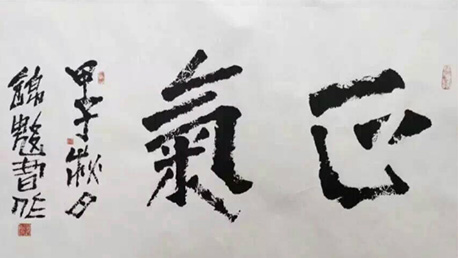 正氣
甲子秋月
錦魁書作